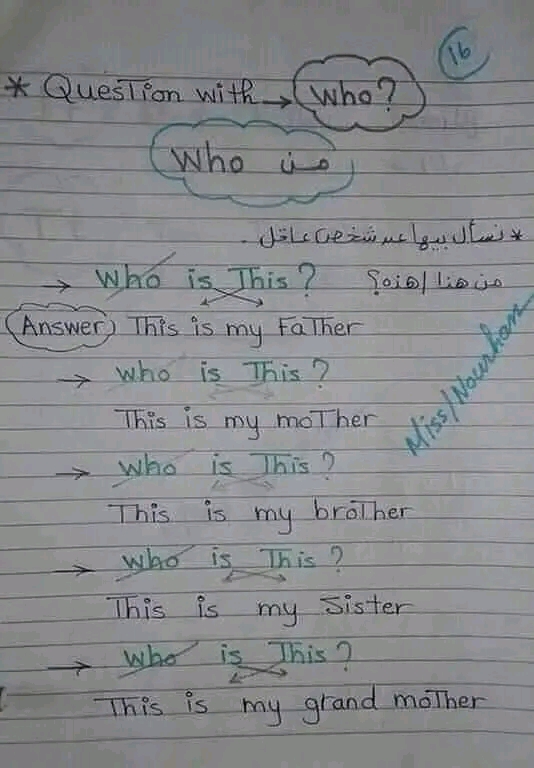 16
* Question with → Who?
Who من
* نسأل بيها عن شخص عاقل .
→ Who is This? من هذا / هذه؟
Answer This is my Father
→ who is This?
This is my moTher
→ who is This?
This is my broTher
→ who is This?
This is my Sister
→ who is This?
This is my grand moTher
Miss/Nourhan